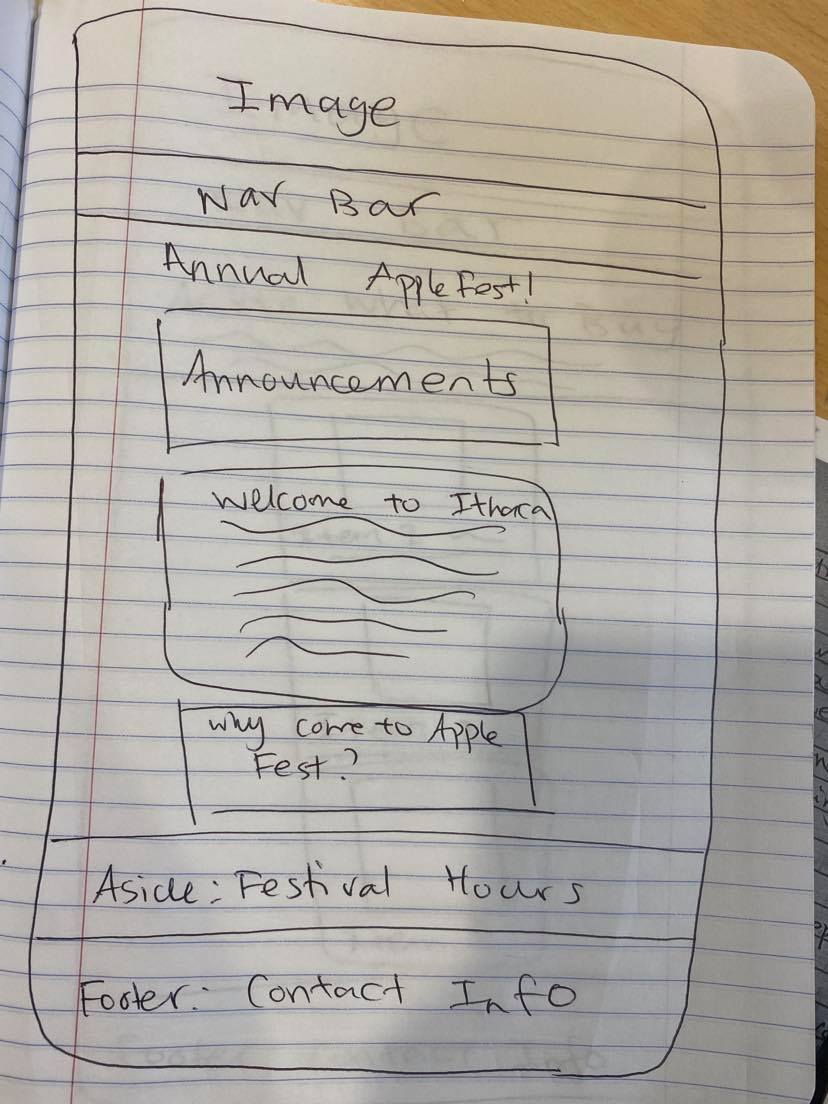 Image
Nav Bar
Annual Apple Fest!
Announcements
Welcome to Ithaca
Why come to Apple
Fest?
Aside: Festival Hours
Footer: Contact Info